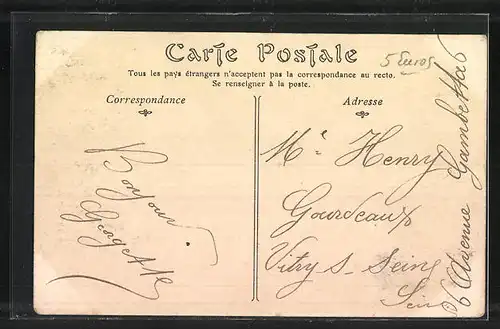 Carte Postale
5 Euros
Tous les pays étrangers n'acceptent pas la correspondance au recto.
Se renseigner à la poste.
Correspondance
Bonjour.
Georgette
Adresse
Mr Henry
Gourdeaux
Vitry s- Seine
Seine
6 Avenue Gambetta 6